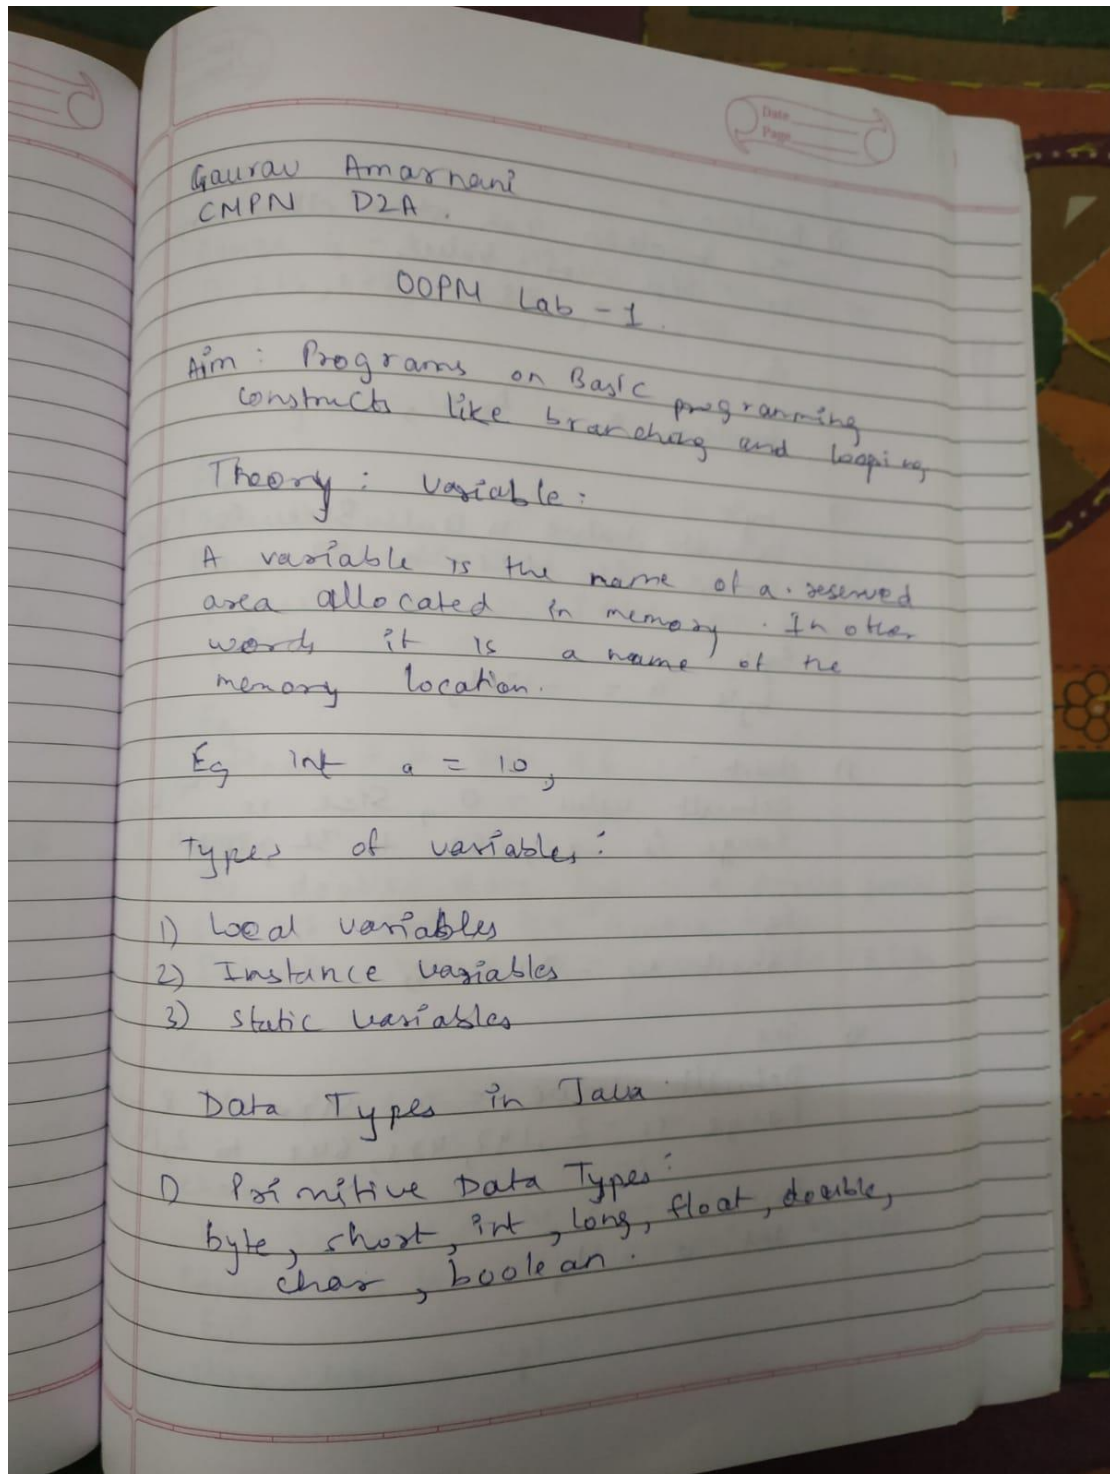 Date
Page
Gaurav Amarnani
CMPN D2A.
OOPM Lab - 1.
Aim : Programs on Basic programming
constructs like branching and looping
Theory : Variable :
A variable is the name of a reserved
area allocated in memory. In other
words it is a name of the
memory location.
Eg int a = 10;
Types of variables :
1) Local variables
2) Instance variables
3) Static variables
Data Types in Java
1) Primitive Data Types :
byte, short, int, long, float, double,
char, boolean.